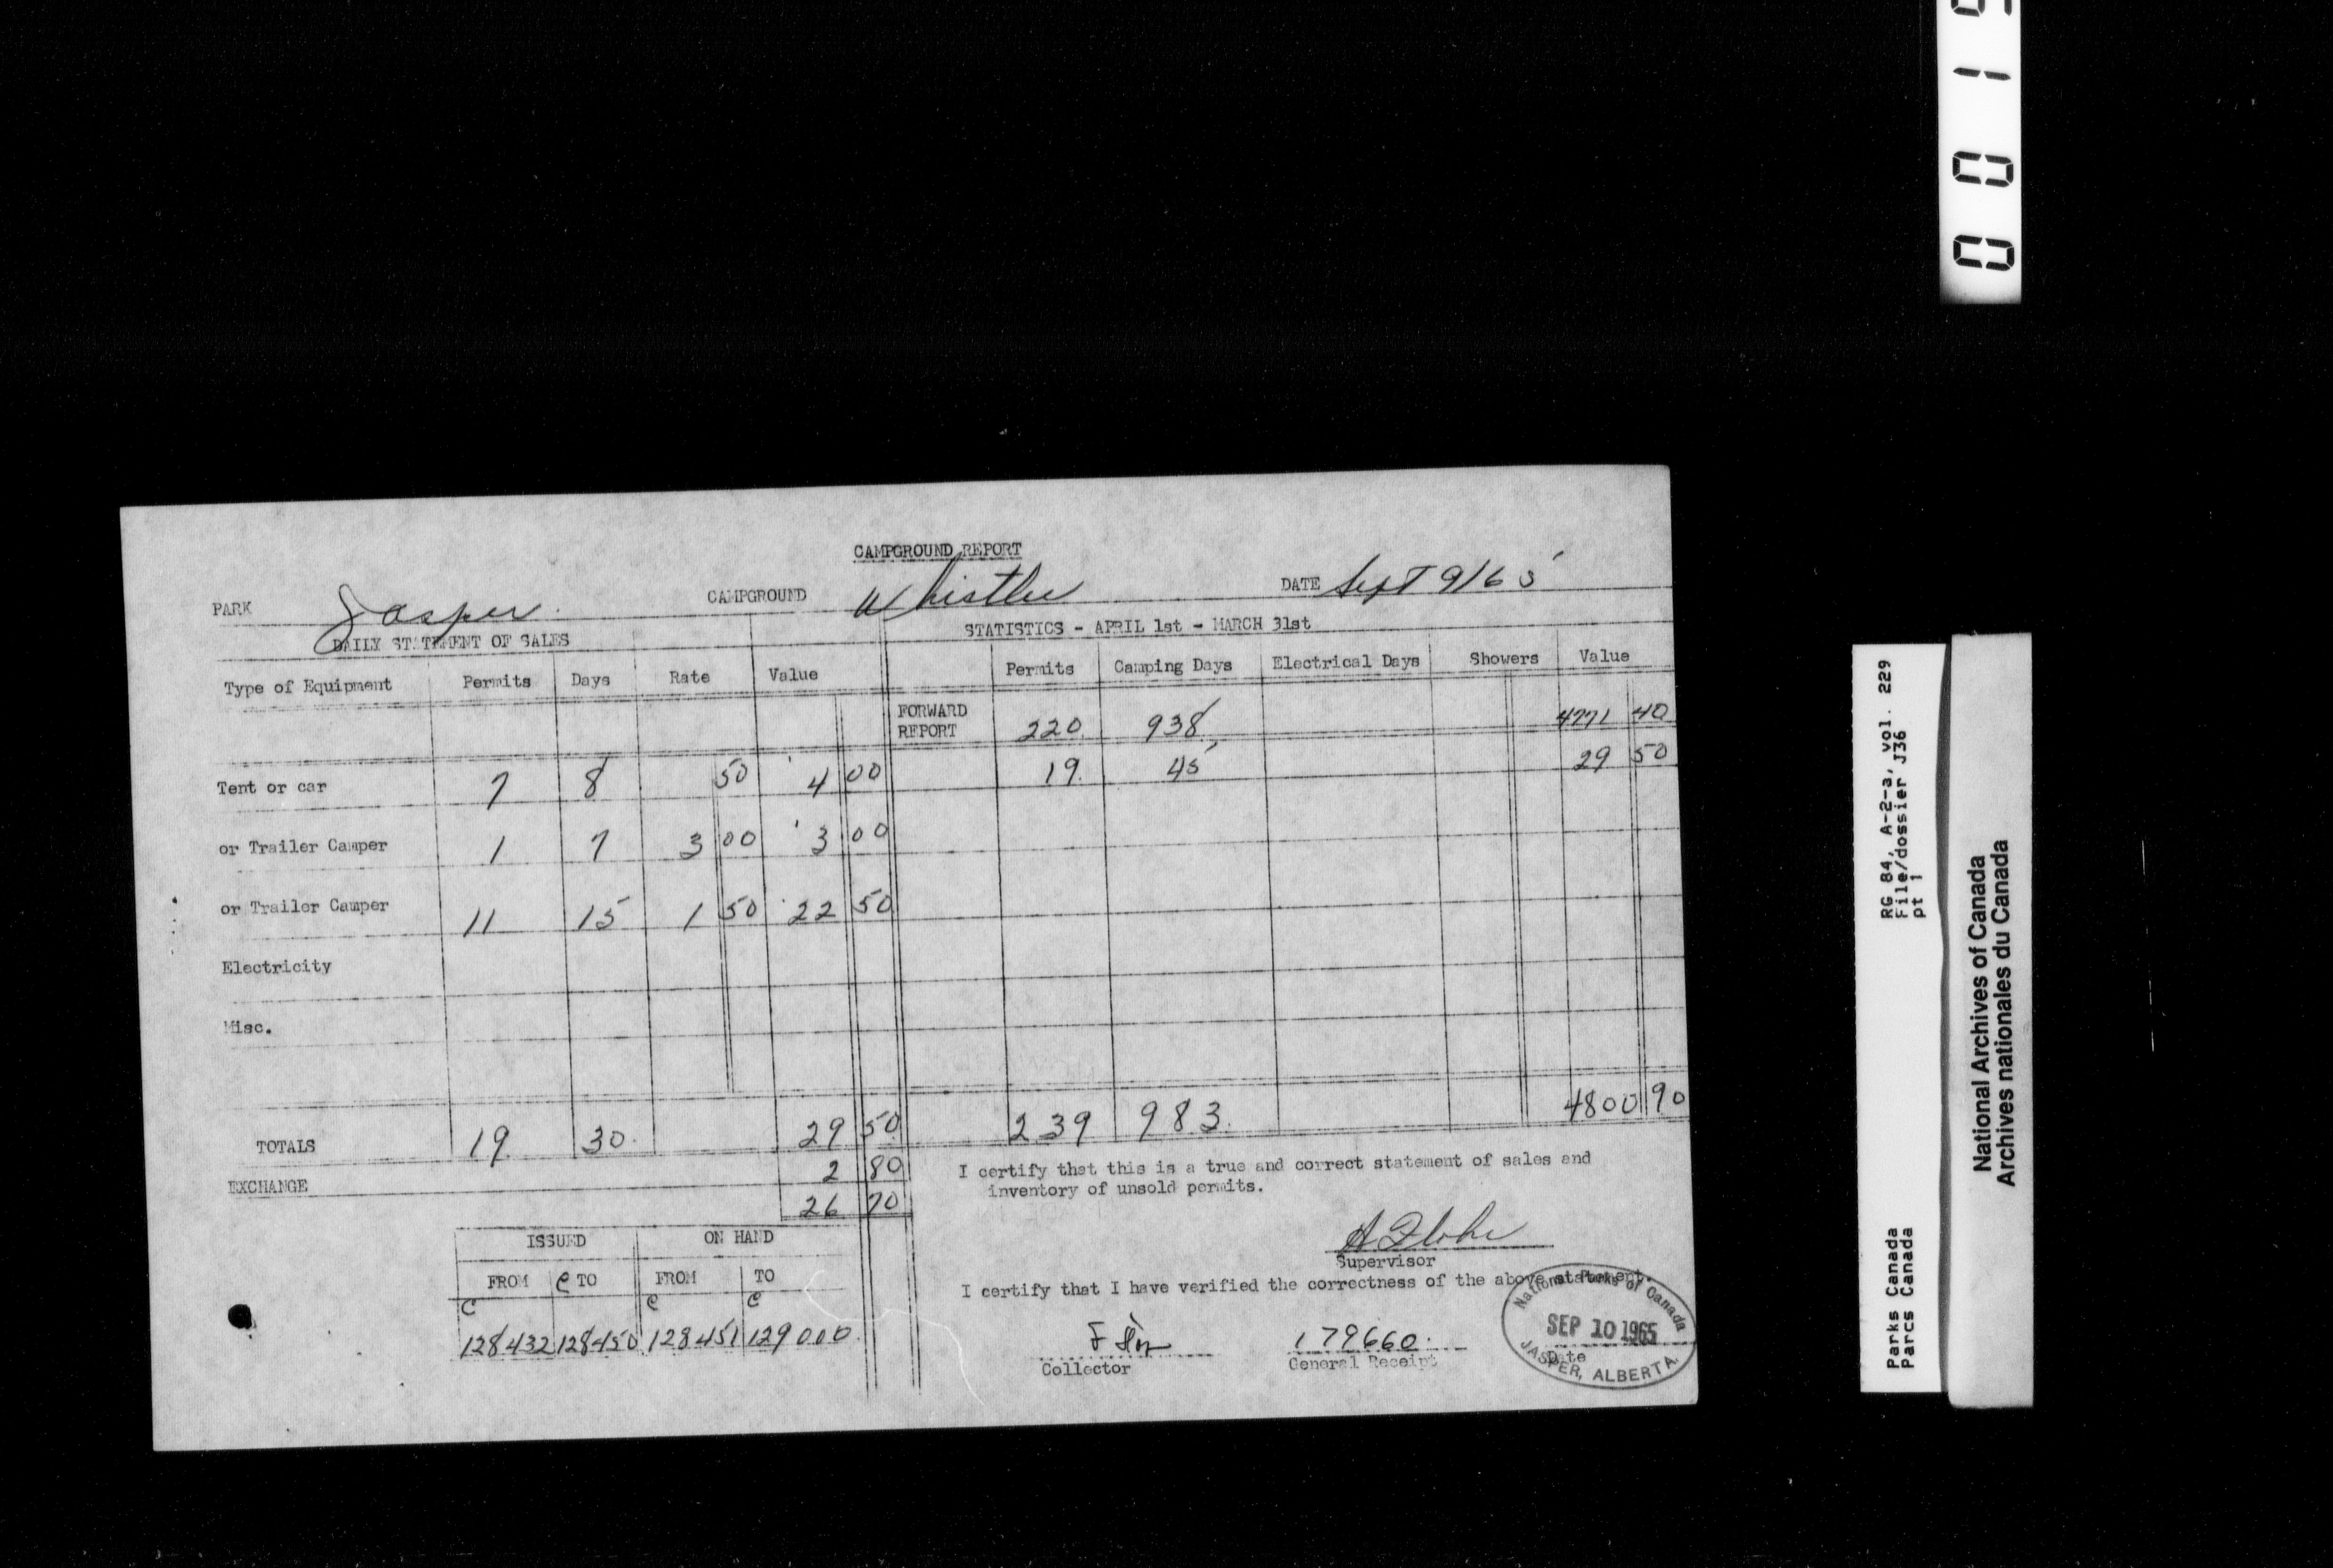 CAMPGROUND REPORT
PARK Jasper CAMPGROUND Whistler DATE Sept 9/65
DAILY STATEMENT OF SALES STATISTICS - APRIL 1st - MARCH 31st
Type of Equipment Permits Days Rate Value Permits Camping Days Electrical Days Showers Value
FORWARD REPORT 220 938 4771 40
Tent or car 7 8 50 4 00 19 45 29 50
or Trailer Camper 1 7 3 00 3 00
or Trailer Camper 11 15 1 50 22 50
Electricity
Misc.
TOTALS 19 30 29 50 239 983 4800 90
EXCHANGE 2 80
26 70
I certify that this is a true and correct statement of sales and
inventory of unsold permits.
Supervisor
I certify that I have verified the correctness of the above statement.
ISSUED ON HAND
FROM C TO FROM TO
C C C
128432 128450 128451 129000
179660
Collector General Receipt Date
National Parks of Canada
SEP 10 1965
JASPER, ALBERTA.
0019
RG 84, A-2-a, vol. 229
File/dossier J36
pt 1
Parks Canada
Parcs Canada
National Archives of Canada
Archives nationales du Canada